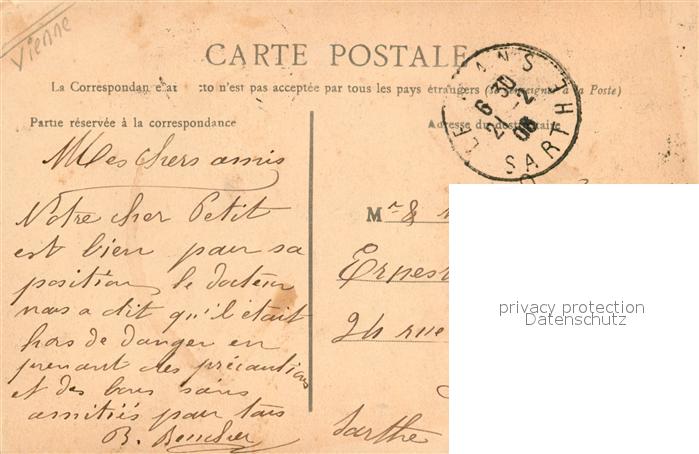 Vienne
CARTE POSTALE
La Correspondan e au cto n'est pas acceptée par tous les pays étrangers (se renseigner à la Poste)
LE MANS SARTHE
6 30
2 - 2
06
Partie réservée à la correspondance
Adresse du destinataire
Mes chers amis
Notre cher Petit
est bien pour sa
position, le docteur
nous a dit qu'il était
hors de danger en
prenant des précautions
et des bons soins
amitiés pour tous
B. Boucher
Mr &
Ernest
24 rue
Sarthe
privacy protection
Datenschutz